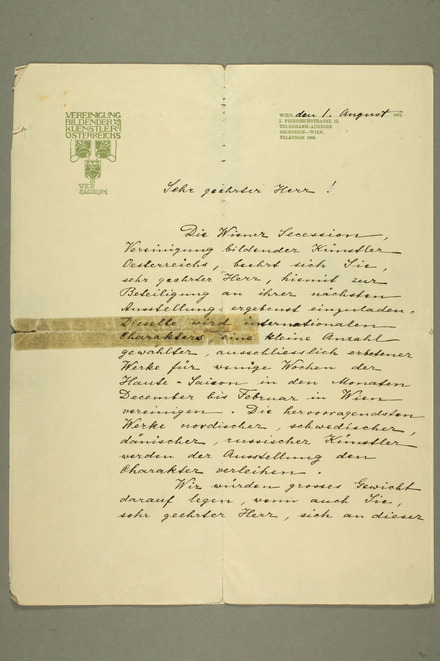 VEREINIGUNG
BILDENDER
KUENSTLER
ÖSTERREICHS
VER
SACRUM
WIEN, den 1. August 190
I. FRIEDRICHSTRASSE 12.
TELEGRAMM-ADRESSE
SECESSION—WIEN.
TELEPHON
Sehr geehrter Herr !
Die Wiener Secession,
Vereinigung bildender Künstler
Oesterreichs, beehrt sich Sie,
sehr geehrter Herr, hiemit zur
Beteiligung an ihrer nächsten
Ausstellung ergebenst einzuladen.
Dieselbe wird internationalen
Charakters, eine kleine Anzahl
gewählter, ausschliesslich erbetener
Werke für wenige Wochen der
Haute-Saison in den Monaten
December bis Februar in Wien
vereinigen. Die hervorragendsten
Werke nordischer, schwedischer,
dänischer, russischer Künstler
werden der Ausstellung den
Charakter verleihen.
Wir würden grosses Gewicht
darauf legen, wenn auch Sie,
sehr geehrter Herr, sich an dieser